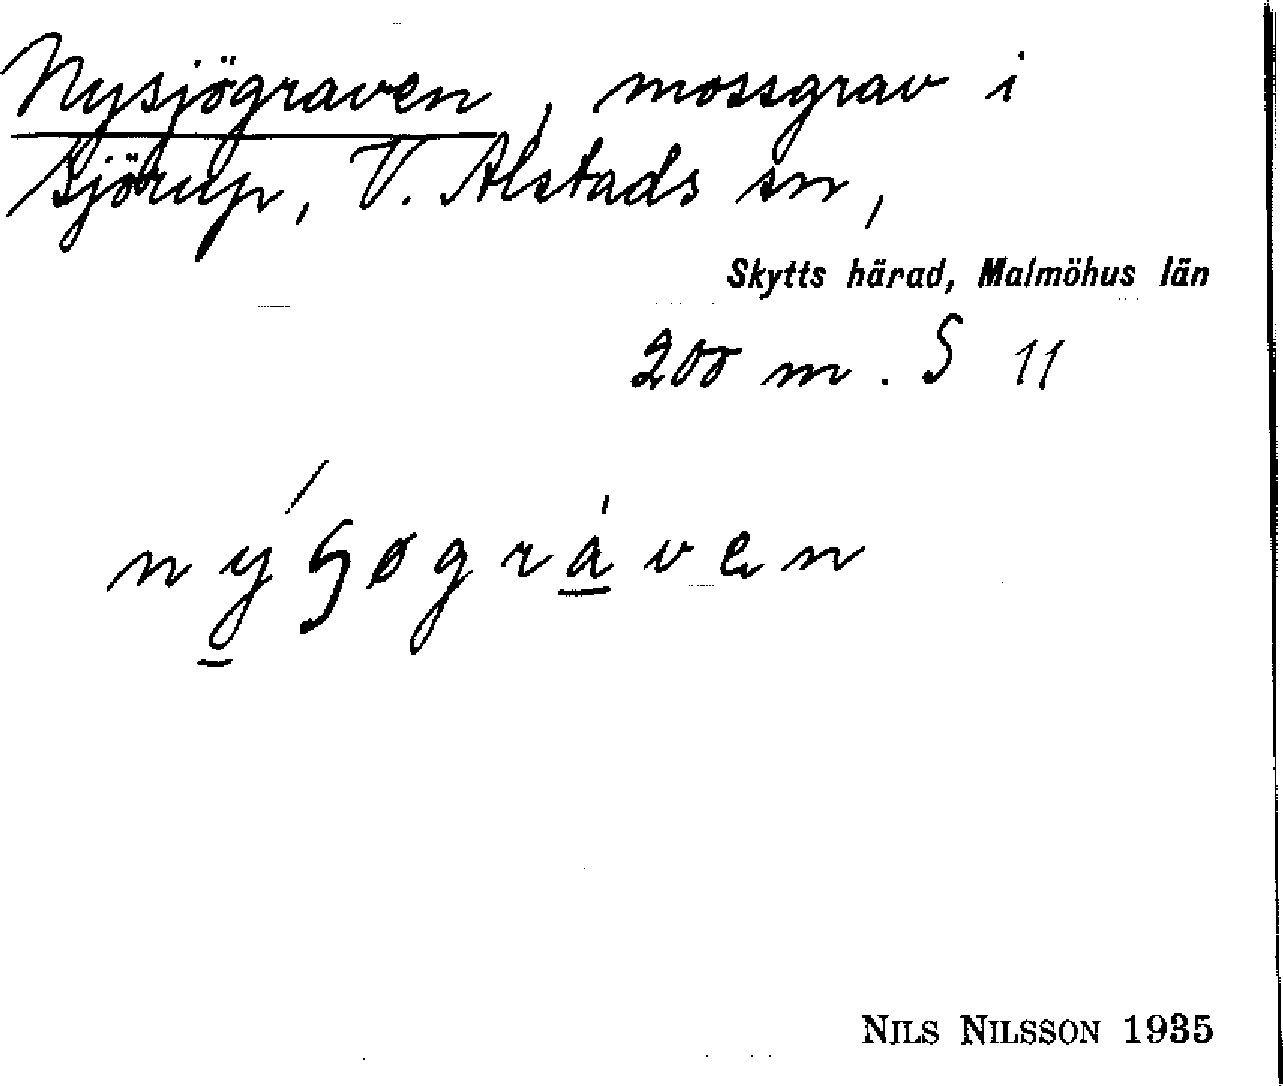 Nysjögraven, mossgrav i
Sjörup, V. Alstads sn,
Skytts härad, Malmöhus län
200 m. S 11
nyʹʂøgrav́en
NILS NILSSON 1935